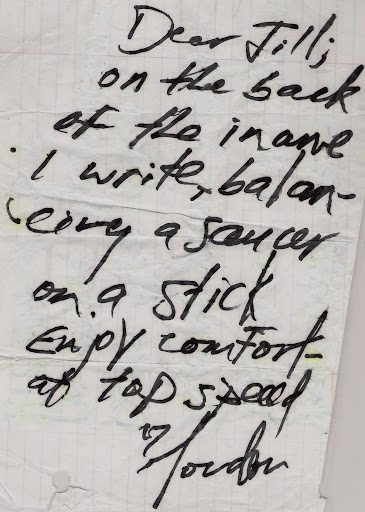 Dear Jill;
on the back
of the inane
I write, balan-
cing a saucer
on a stick
Enjoy comfort
at top speed